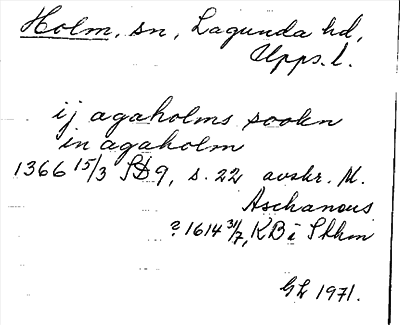 Holm, sn, Lagunda hd,
Upps. l.
ij agaholms sookn
in agaholm
1366 15/3 SD 9, s. 22 avskr. M.
Aschaneus
? 1614 31/7, KB i Sthm
GL 1971.